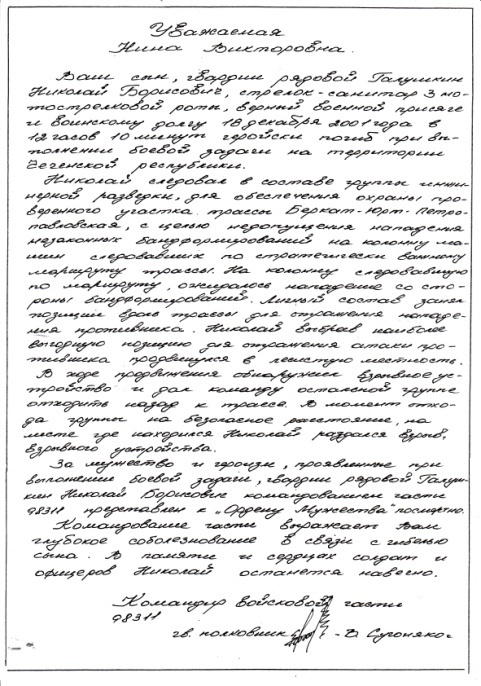 Уважаемая
Нина Викторовна.
Ваш сын, гвардии рядовой Галушкин
Николай Борисович, стрелок-санитар 3 мо-
тострелковой роты, верный военной присяге
и воинскому долгу 18 декабря 2001 года в
12 часов 10 минут геройски погиб при вы-
полнении боевой задачи на территории
Чеченской республики.
Николай следовал в составе группы инжи-
нерной разведки, для обеспечения охраны про-
веренного участка трассы Беркат-Юрт-Петро-
павловская, с целью недопущения нападения
незаконных бандформирований на колонну ма-
шин следовавших по стратегически важному
маршруту трассы. На колонну следовавшую
по маршруту, ожидалось нападение со сто-
роны бандформирований. Личный состав занял
позиции вдоль трассы для отражения нападе-
ния противника. Николай выбрав наиболее
выгодную позицию для отражения атаки про-
тивника продвинулся в лесистую местность.
В ходе продвижения обнаружил взрывное ус-
тройство и дал команду остальной группе
отходить назад к трассе. В момент отхо-
да группы на безопасное расстояние, на
месте где находился Николай раздался взрыв,
взрывного устройства.
За мужество и героизм, проявленные при
выполнении боевой задачи, гвардии рядовой Галуш-
кин Николай Борисович командованием части
98311 представлен к "Ордену Мужества" посмертно.
Командование части выражает Вам
глубокое соболезнование в связи с гибелью
сына. В памяти и сердцах солдат и
офицеров Николай останется навечно.
Командир войсковой части
98311
гв. полковник - В. Сугоняко-